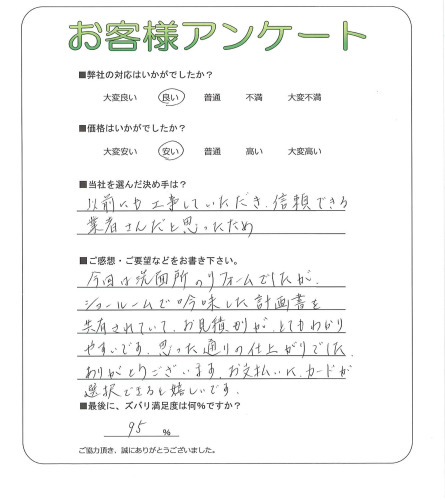 お客様アンケート
■弊社の対応はいかがでしたか？
大変良い 良い 普通 不満 大変不満
■価格はいかがでしたか？
大変安い 安い 普通 高い 大変高い
■当社を選んだ決め手は？
以前にも工事していただき、信頼できる
業者さんだと思ったため
■ご感想・ご要望などをお書き下さい。
今回は洗面所のリフォームでしたが、
ショールームで吟味した計画書を
共有されていて、お見積りが、とてもわかり
やすいです。思った通りの仕上がりでした。
ありがとうございます。お支払いに、カードが
選択できると嬉しいです。
■最後に、ズバリ満足度は何%ですか？
95 %
ご協力頂き、誠にありがとうございました。